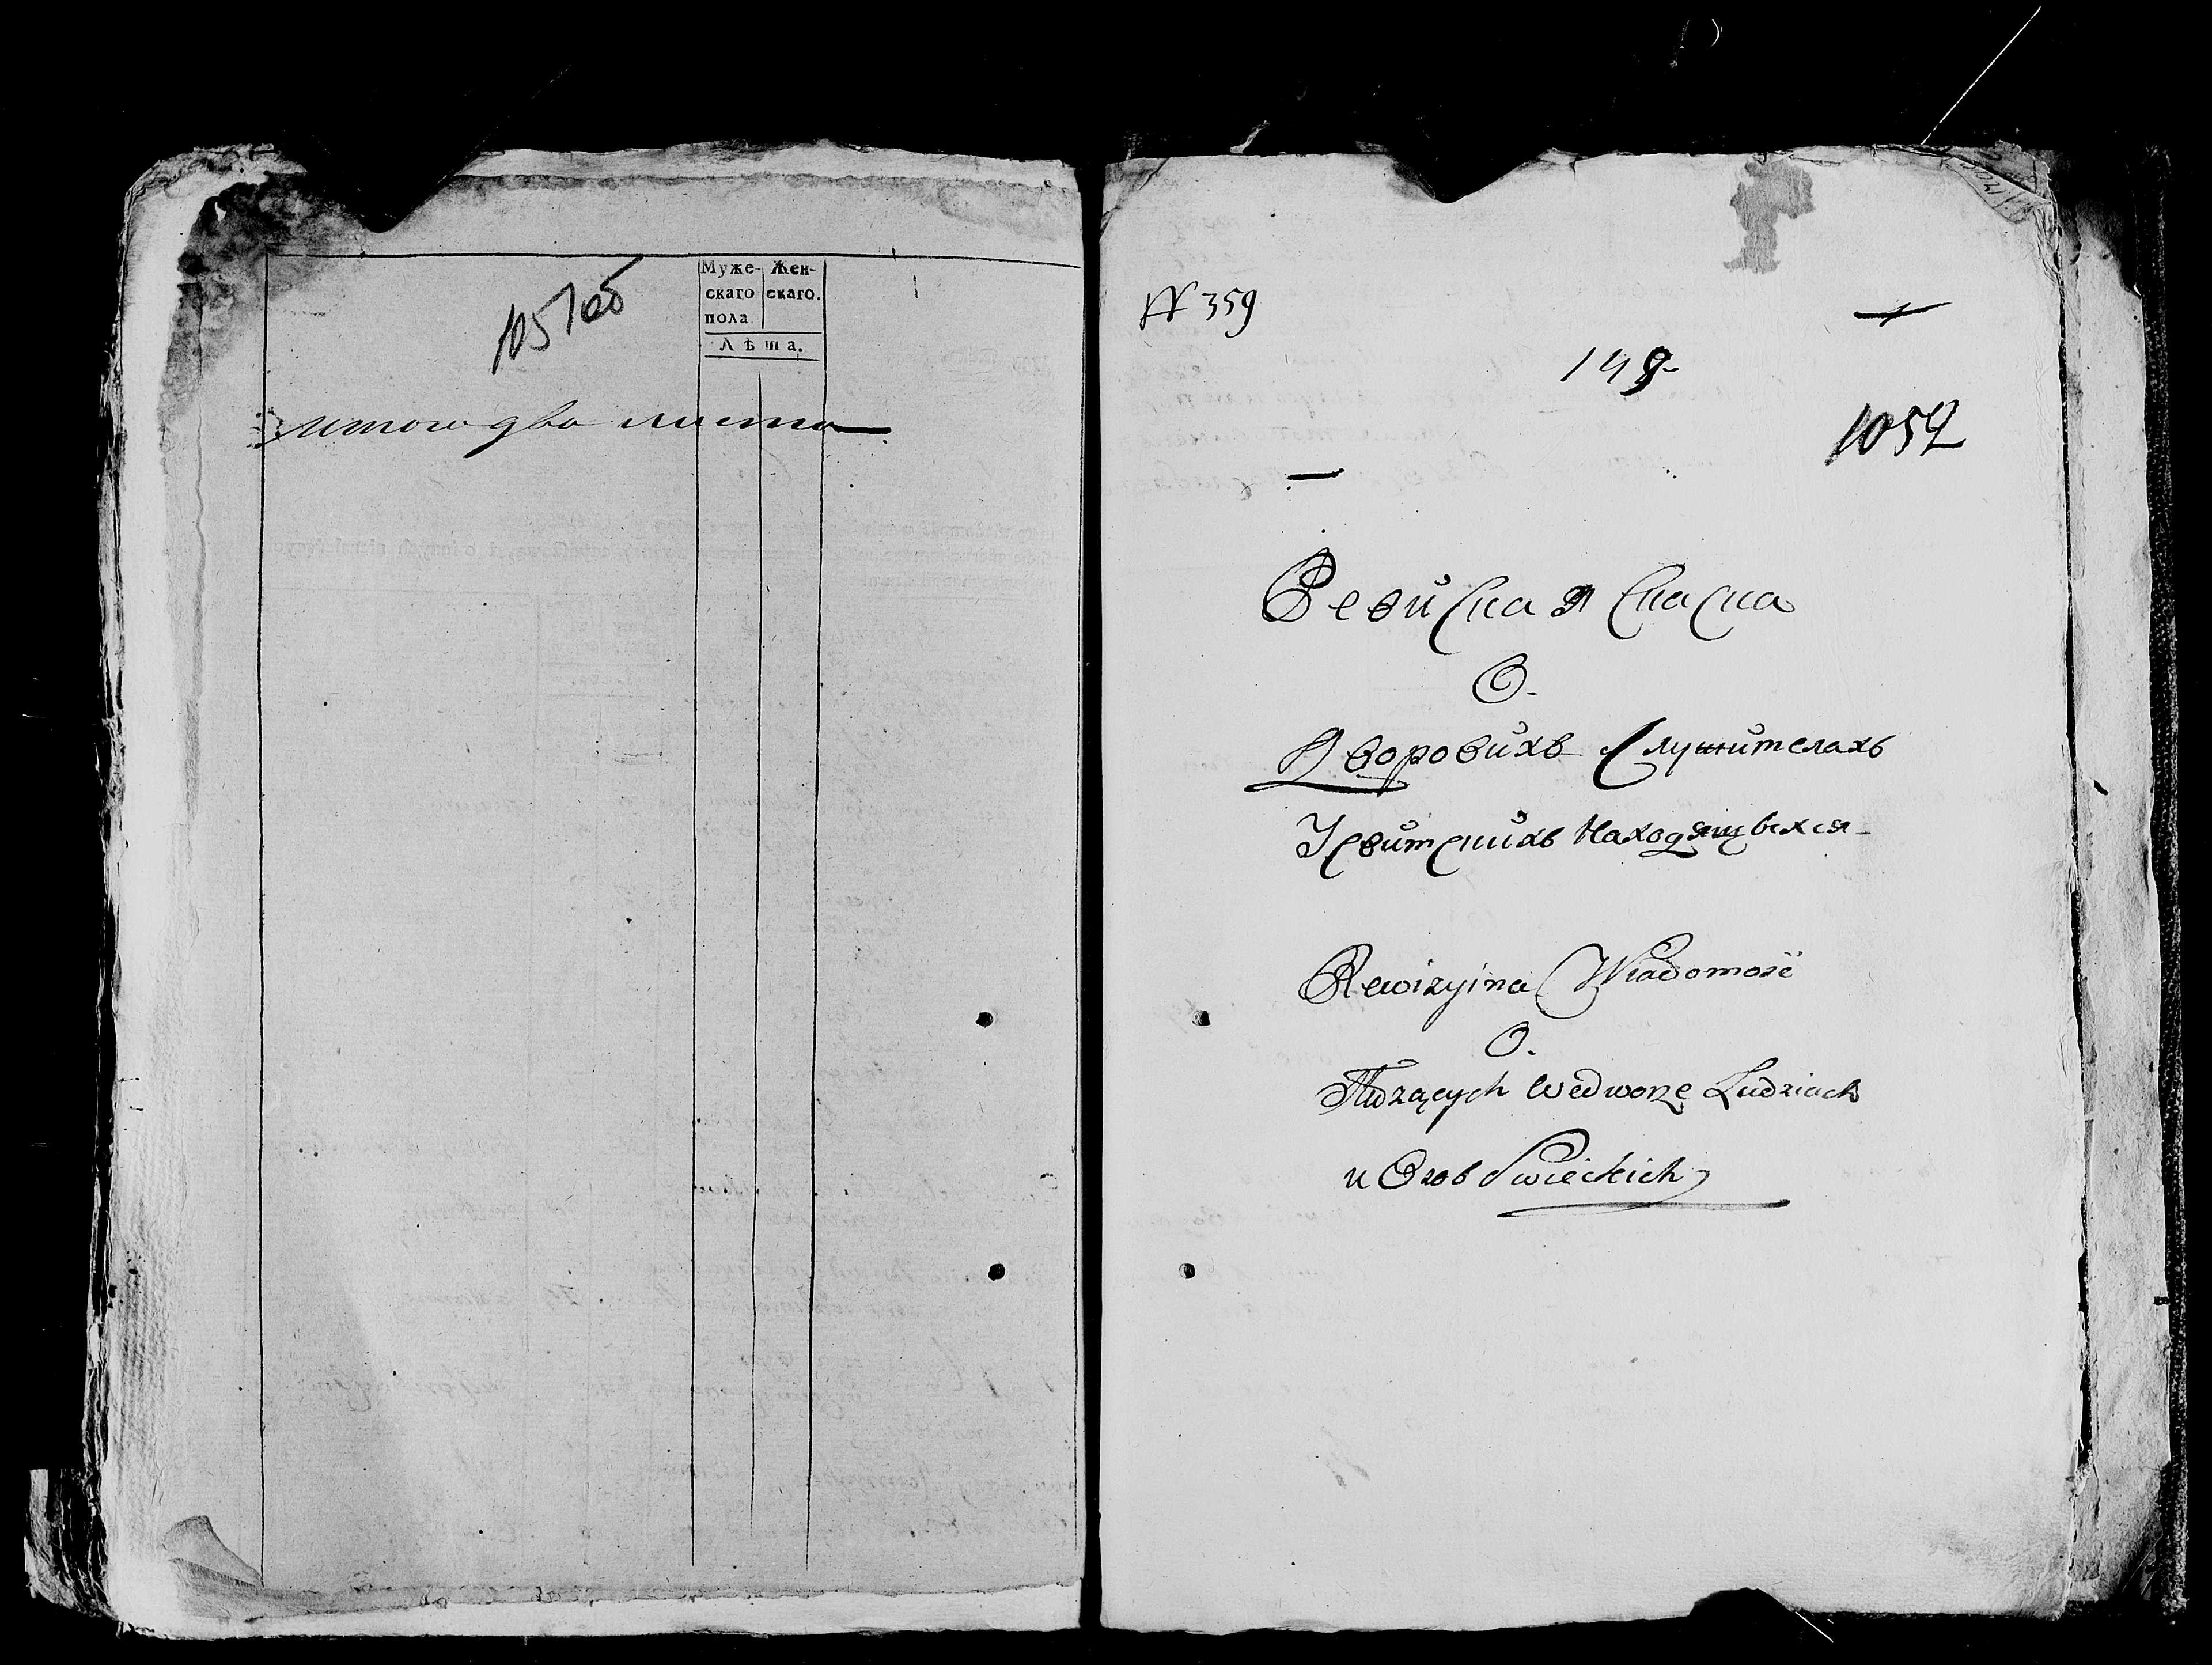 1051 об
Муже- Жен-
скаго скаго.
пола
Лѣта.
итого два листа
N 359
149.
1052
Ревиская скаска
О.
Дворовихъ служителахъ
Усвитскихъ Находящыхся
Rewizyina Wiadomość
O.
służących wedworze Ludziach
и Osob Swieckich